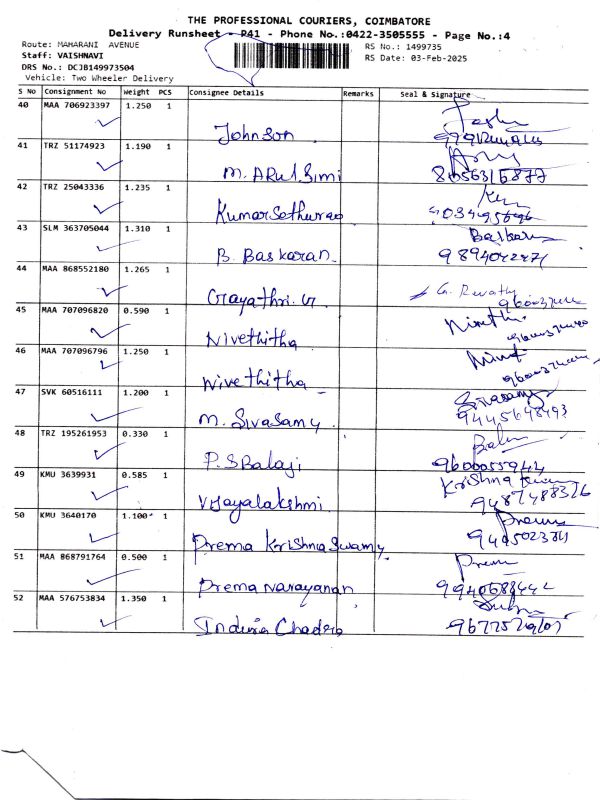 THE PROFESSIONAL COURIERS, COIMBATORE
Delivery Runsheet - P41 - Phone No.:0422-3505555 - Page No.:4
Route: MAHARANI AVENUE RS No.: 1499735
Staff: VAISHNAVI RS Date: 03-Feb-2025
DRS No.: DCJB1499973504
Vehicle: Two Wheeler Delivery
S No Consignment No Weight PCS Consignee Details Remarks Seal & Signature
40 MAA 706923397 1.250 1
Johnson
41 TRZ 51174923 1.190 1
M. ARul Simi
42 TRZ 25043336 1.235 1
Kumar Sethurao
43 SLM 363705044 1.310 1 Baskaran
B. Baskaran
44 MAA 868552180 1.265 1
Gayathri. G G. Revathy
45 MAA 707096820 0.590 1
Nivethitha
46 MAA 707096796 1.250 1
Nivethitha
47 SVK 60516111 1.200 1 Sivasamy
M. Sivasamy 9445648493
48 TRZ 195261953 0.330 1
P.S Balaji 9600055944
49 KMU 3639931 0.585 1 Krishna
Vijayalakshmi 9487488326
50 KMU 3640170 1.100 1 Prema
Prema Krishna Swamy
51 MAA 868791764 0.500 1 Prem
Prema Narayanan 9940688442
52 MAA 576753834 1.350 1
Indira Chadra